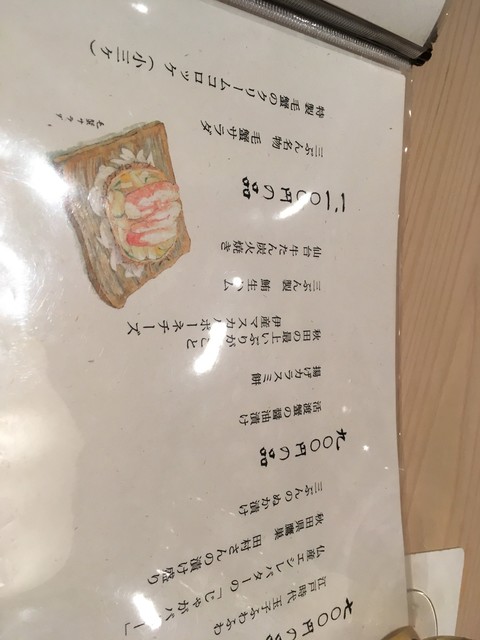 七〇〇円の品
江戸時代 玉子ふわふわ
仏産エシレバターの「じゃがバター」
秋田県鷹巣 田村さんの漬け盛り
三ぶんのぬか漬け
九〇〇円の品
活渡蟹の醤油漬け
揚げカラスミ餅
秋田の最上いぶりがっこと
伊産マスカルポーネチーズ
三ぶん製 鮪生ハム
仙台牛たん炭火焼き
一、一〇〇円の品
三ぶん名物 毛蟹サラダ
特製 毛蟹のクリームコロッケ（小三ヶ）
毛蟹サラダ